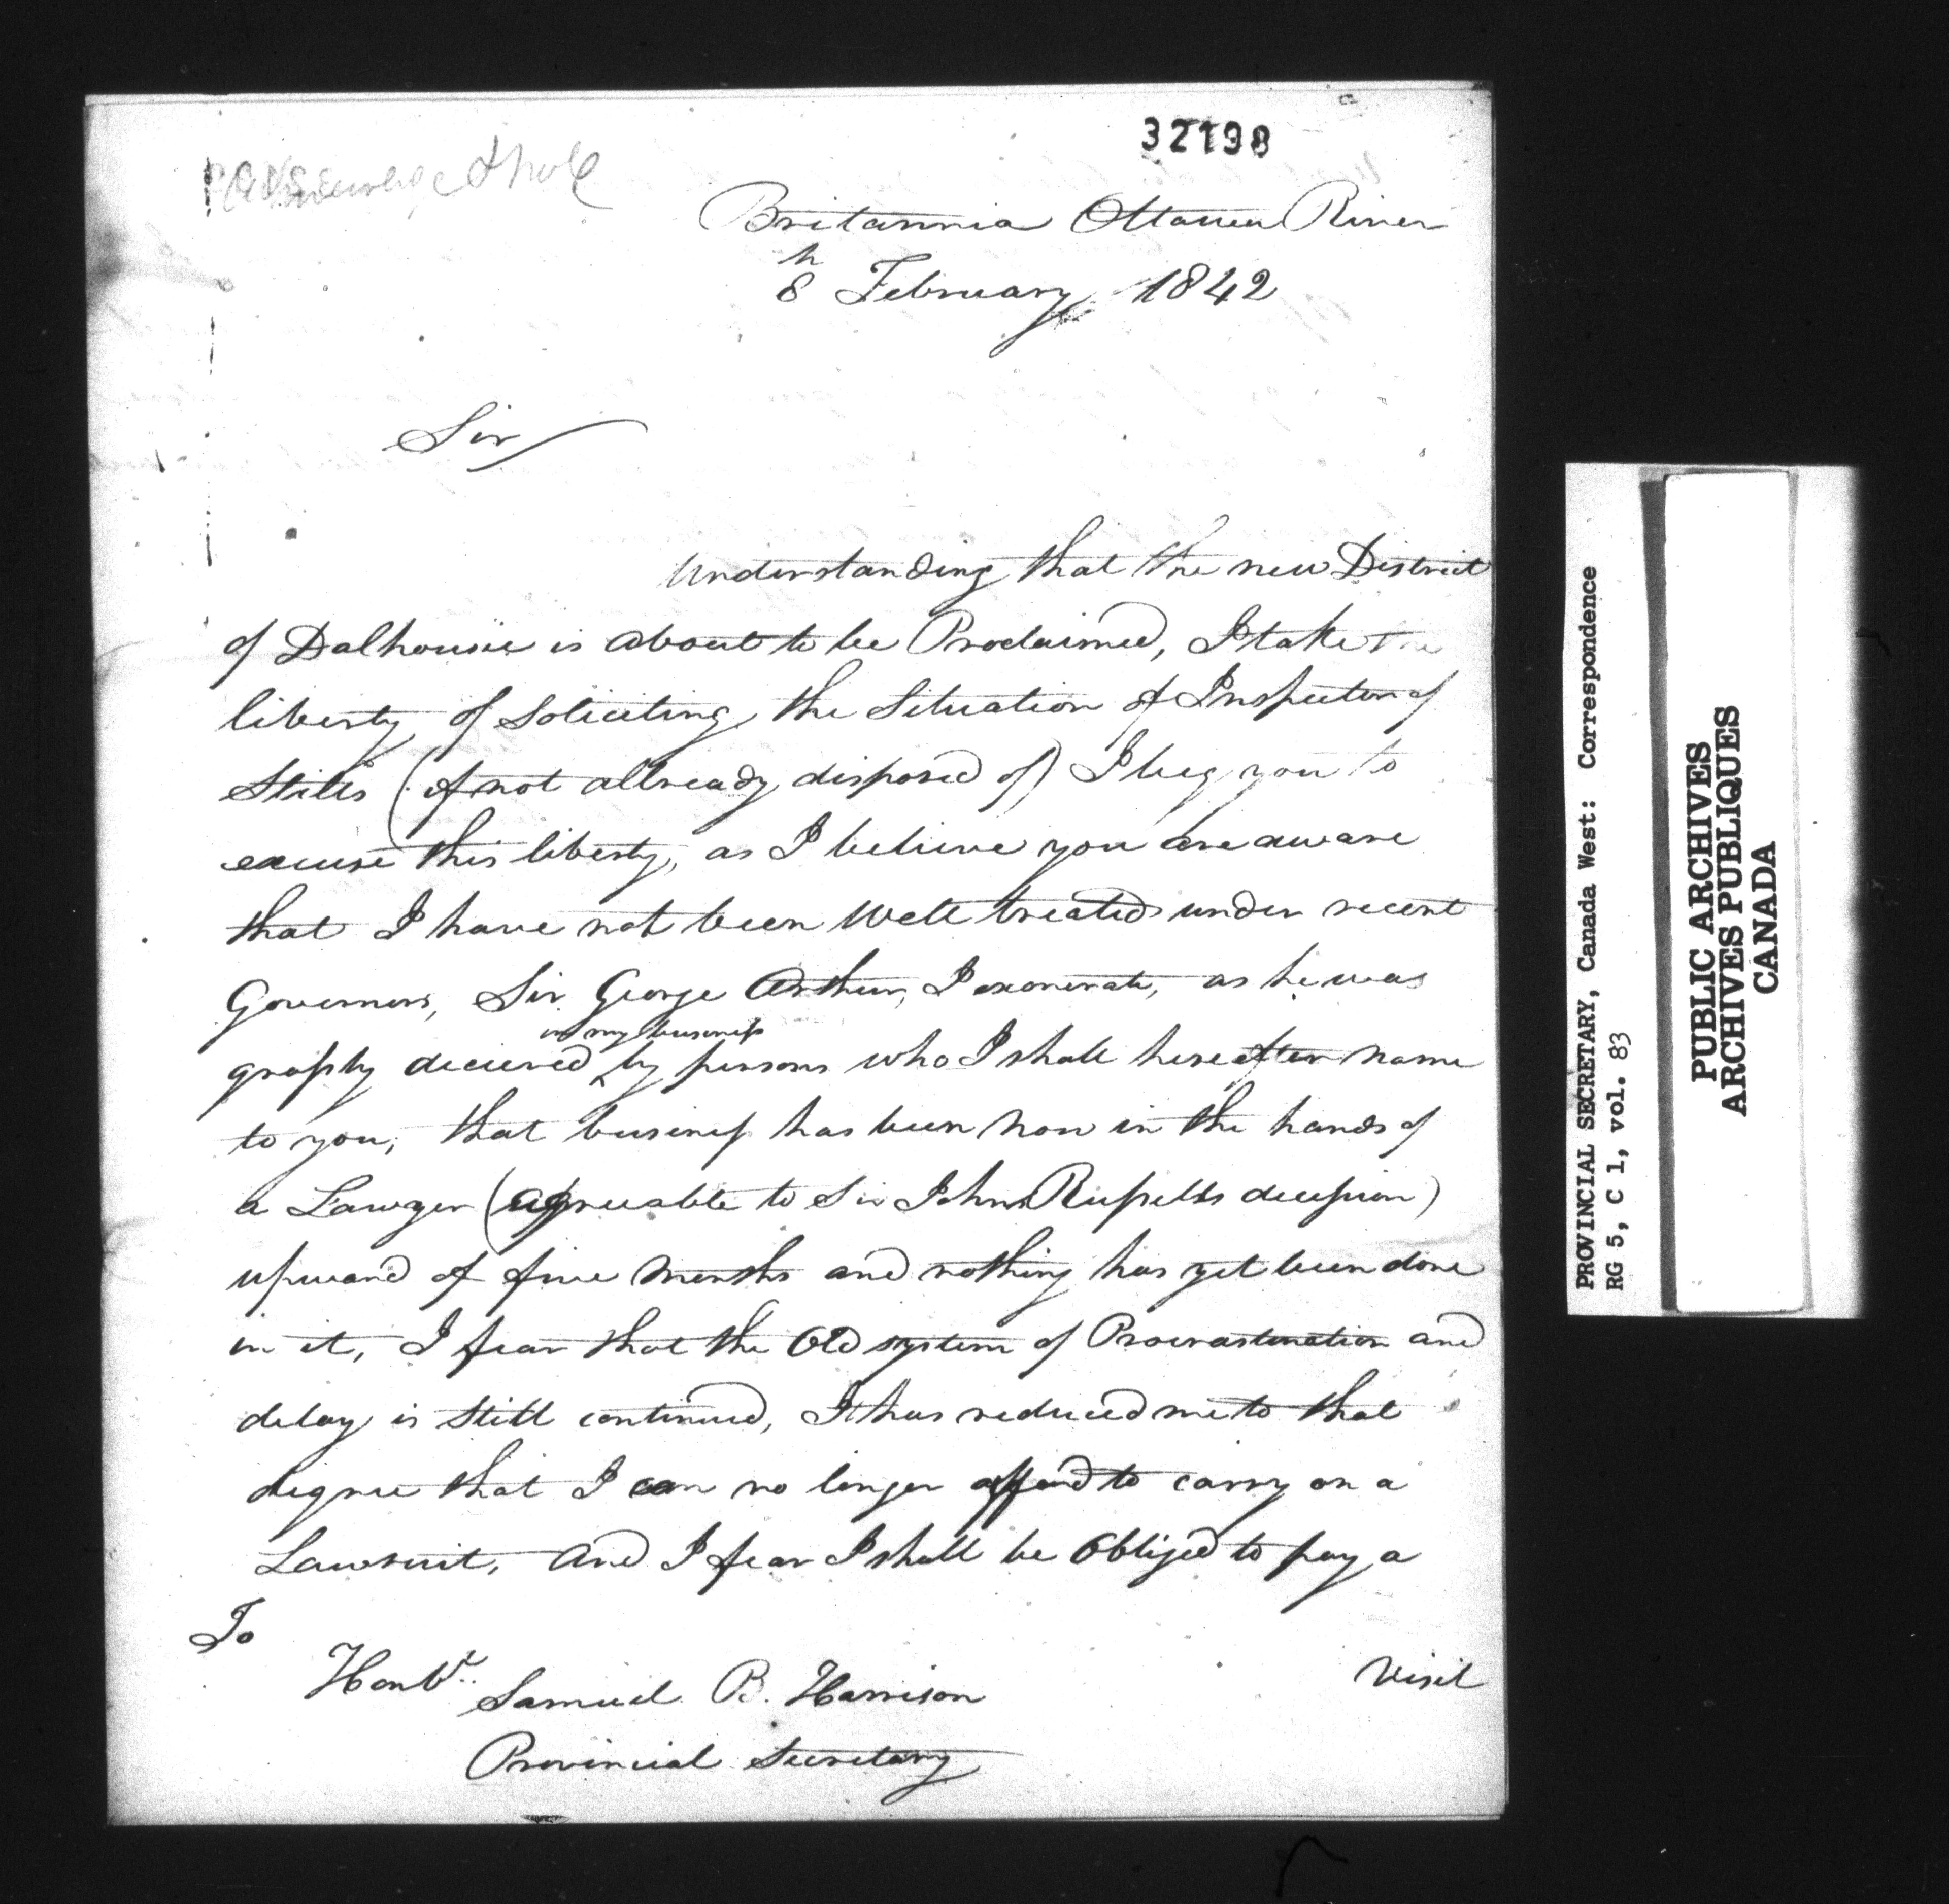 32198
Britannia Ottawa River
8th February 1842
Sir
Understanding that the new District
of Dalhousie is about to be Proclaimed, I take the
liberty of Soliciting the Situation of Inspector of
Stills (if not allready disposed of) I beg you to
excuse this liberty, as I believe you are aware
that I have not been Well treated under recent
Governors, Sir George Arthur, I exonerate, as he was
in my business
grossly decieved by persons who I shall hereafter name
to you, that business has been now in the hands of
a Lawyer (agreeable to Sir John Russells decission)
upward of five Months and nothing has yet been done
in it, I fear that the Old system of Procrastination and
delay is Still continued, It has reduced me to that
degree that I can no longer afford to carry on a
Lawsuit, And I fear I shall be Obliged to pay a
To
Honble Samuel B. Harrison
Visit
Provincial Secretary
PROVINCIAL SECRETARY, Canada West: Correspondence
RG 5, C 1, vol. 83
PUBLIC ARCHIVES
ARCHIVES PUBLIQUES
CANADA